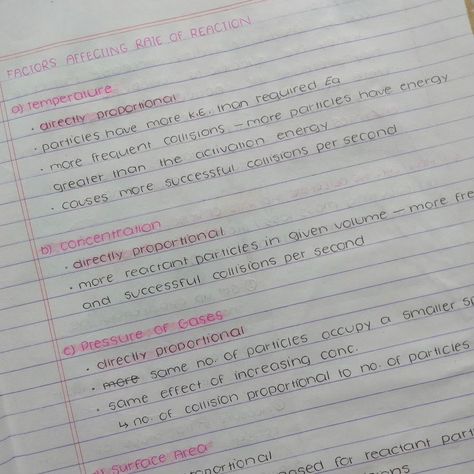 FACTORS AFFECTING RATE OF REACTION
a) Temperature
• directly proportional
• particles have more K.E. than required Ea
• more frequent collisions – more particles have energy
greater than the activation energy
• causes more successful collisions per second
b) concentration
• directly proportional
• more reactant particles in given volume – more fre
and successful collisions per second
c) Pressure of Gases
• directly proportional
• more same no. of particles occupy a smaller s
• same effect of increasing conc.
↳ no. of collision proportional to no. of particles
Surface Area
for reactant part